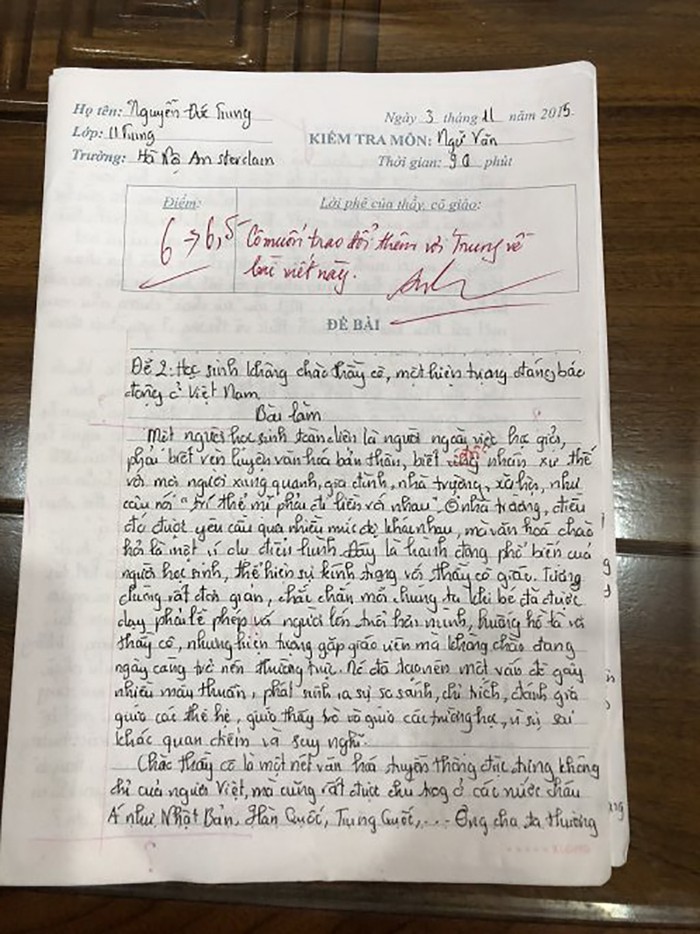 Họ tên: Nguyễn Đức Trung
Ngày 3 tháng 11 năm 2015.
Lớp: 11 Trung
KIỂM TRA MÔN: Ngữ Văn
Trường: Hà Nội Amsterdam
Thời gian: 90 phút
Điểm:
Lời phê của thầy, cô giáo:
6 → 6,5
Cô muốn trao đổi thêm với Trung về
bài viết này.
ĐỀ BÀI
Đề 2: Học sinh không chào thầy cô, một hiện tượng đáng báo
động ở Việt Nam
Bài làm
Một người học sinh toàn diện là người ngoài việc học giỏi,
phải biết rèn luyện văn hóa bản thân, biết đối nhân xử thế
với mọi người xung quanh, gia đình, nhà trường, xã hội, như
câu nói "trí thể mĩ phải đi liền với nhau". Ở nhà trường, điều
đó được yêu cầu qua nhiều mức độ khác nhau, mà văn hoá chào
hỏi là một ví dụ điển hình. Đây là hành động phổ biến của
người học sinh, thể hiện sự kính trọng với thầy cô giáo. Tưởng
chừng rất đơn giản, chắc chắn mà chúng ta khi bé đã được
dạy phải lễ phép với người lớn tuổi hơn mình, huống hồ là với
thầy cô, nhưng hiện tượng gặp giáo viên mà không chào đang
ngày càng trở nên thường trực. Nó đã tạo nên một vấn đề gây
nhiều mâu thuẫn, phát sinh ra sự so sánh, chỉ trích, đánh giá
giữa các thế hệ, giữa thầy trò và giữa các trường học, vì sự sai
khác quan điểm và suy nghĩ.
Chào thầy cô là một nét văn hoá truyền thống đặc trưng không
chỉ của người Việt, mà cũng rất được chú trọng ở các nước châu
Á như Nhật Bản, Hàn Quốc, Trung Quốc,... Ông cha ta thường